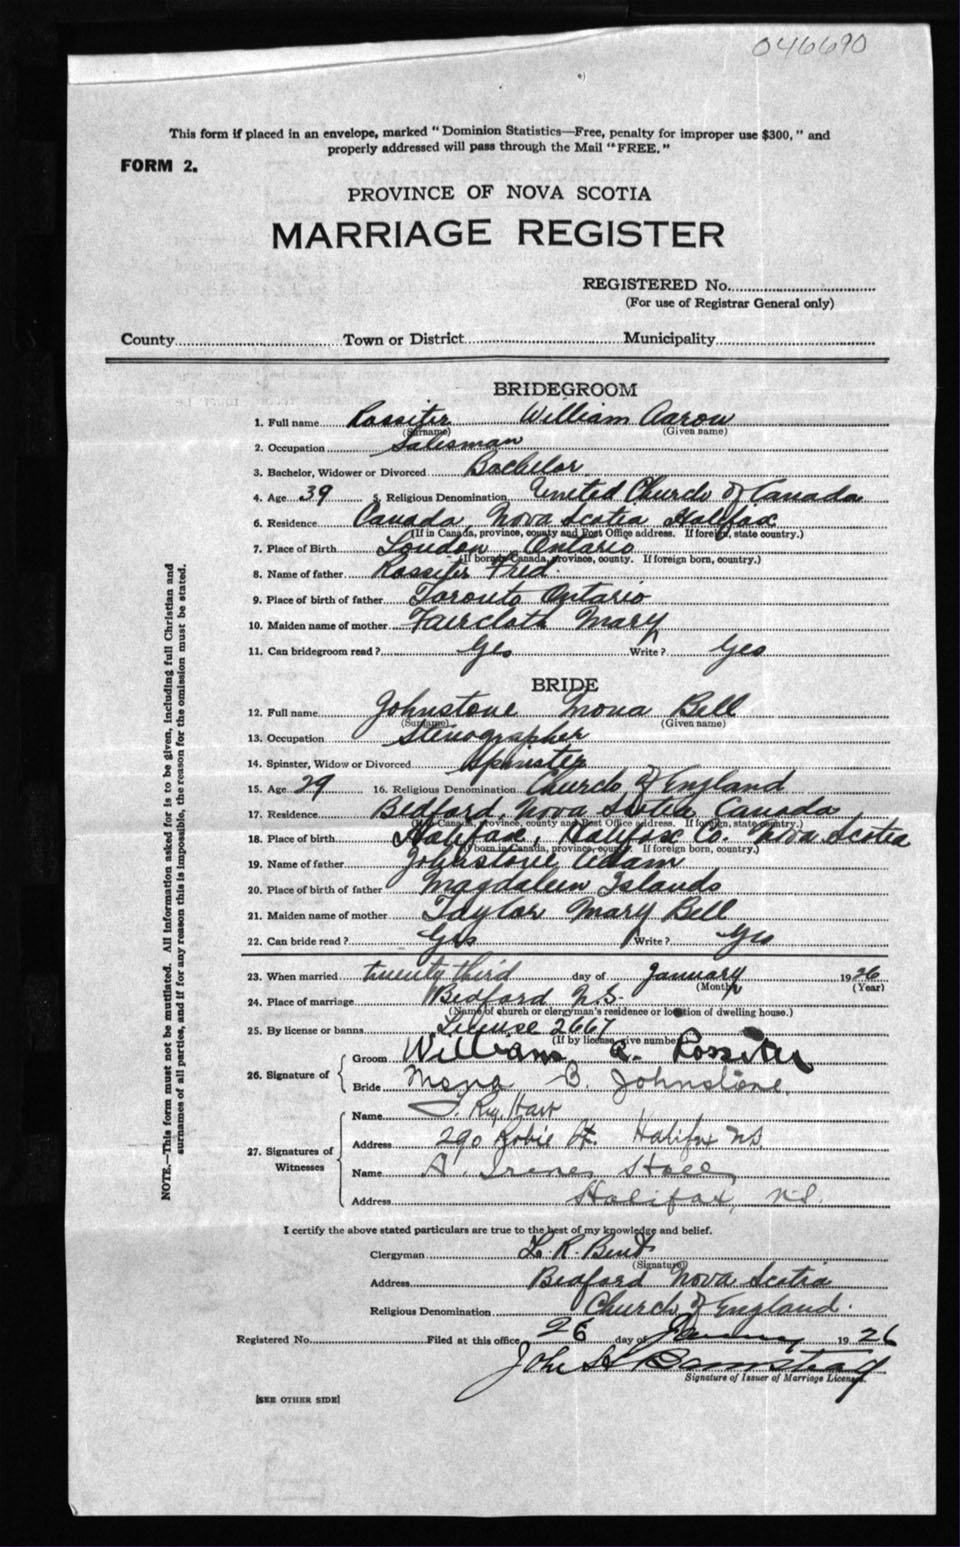 046690
This form if placed in an envelope, marked "Dominion Statistics—Free, penalty for improper use $300," and
properly addressed will pass through the Mail "FREE."
FORM 2.
PROVINCE OF NOVA SCOTIA
MARRIAGE REGISTER
REGISTERED No.
(For use of Registrar General only)
County Town or District Municipality
BRIDEGROOM
1. Full name Rossiter William Aaron
(Surname) (Given name)
2. Occupation Salesman
3. Bachelor, Widower or Divorced Bachelor
4. Age 39 5. Religious Denomination United Church of Canada
6. Residence Canada, Nova Scotia Halifax
(If in Canada, province, county and Post Office address. If foreign, state country.)
7. Place of Birth London Ontario
(If born in Canada, province, county. If foreign born, country.)
8. Name of father Rossiter Fred
9. Place of birth of father Toronto Ontario
10. Maiden name of mother Faircloth Mary
11. Can bridegroom read? Yes Write? Yes
BRIDE
12. Full name Johnstone Mona Bell
(Surname) (Given name)
13. Occupation Stenographer
14. Spinster, Widow or Divorced Spinster
15. Age 29 16. Religious Denomination Church of England
17. Residence Bedford, Nova Scotia Canada
(If in Canada, province, county and Post Office address. If foreign, state country.)
18. Place of birth Halifax, Halifax Co. Nova Scotia
(If born in Canada, province, county. If foreign born, country.)
19. Name of father Johnstone Adam
20. Place of birth of father Magdaleen Islands
21. Maiden name of mother Taylor Mary Bell
22. Can bride read? Yes Write? Yes
23. When married twenty third day of January 1926
(Month) (Year)
24. Place of marriage Bedford N.S.
(Name of church or clergyman's residence or location of dwelling house.)
25. By license or banns License 2667
(If by license, give number)
26. Signature of
Groom William A. Rossiter
Bride Mona B. Johnstone
27. Signatures of Witnesses
Name Hart
Address 290 Robie St. Halifax NS
Name A. Irene
Address Halifax, N.S.
I certify the above stated particulars are true to the best of my knowledge and belief.
Clergyman R. Bent
(Signature)
Address Bedford Nova Scotia
Religious Denomination Church of England.
Registered No. Filed at this office 26 day of January 1926
John H Barnstead
Signature of Issuer of Marriage Licenses.
[SEE OTHER SIDE]
NOTE.—This form must not be mutilated. All information asked for is to be given, including full Christian and
surnames of all parties, and if for any reason this is impossible, the reason for the omission must be stated.